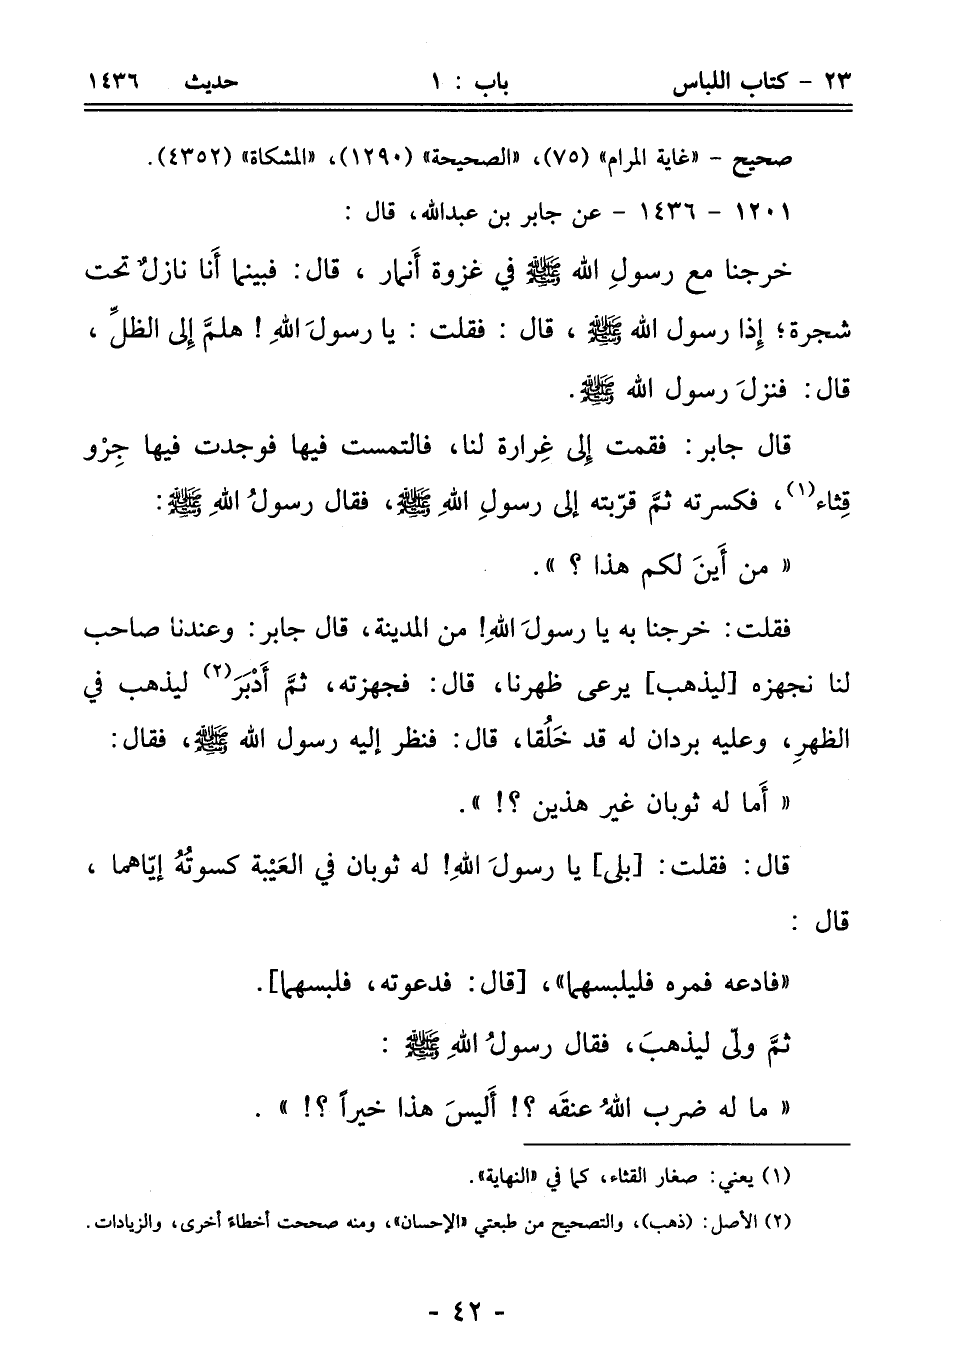 ٢٣ - كتاب اللباس باب : ١ حديث ١٤٣٦
صحيح - «غاية المرام» (٧٥)، «الصحيحة» (١٢٩٠)، «المشكاة» (٤٣٥٢).
١٢٠١ - ١٤٣٦ - عن جابر بن عبدالله، قال :
خرجنا مع رسولِ الله ﷺ في غزوة أَنمار ، قال: فبينما أَنا نازلٌ تحت
شجرة؛ إِذا رسول الله ﷺ ، قال : فقلت : يا رسولَ اللهِ ! هلمَّ إِلى الظلِّ ،
قال: فنزلَ رسول الله ﷺ.
قال جابر: فقمت إِلى غِرارة لنا، فالتمست فيها فوجدت فيها جِرْو
قِثاء(١)، فكسرته ثمَّ قرّبته إلى رسولِ اللهِ ﷺ، فقال رسولُ اللهِ ﷺ:
« من أَينَ لكم هذا ؟ ».
فقلت: خرجنا به يا رسولَ اللهِ! من المدينة، قال جابر: وعندنا صاحب
لنا نجهزه [ليذهب] يرعى ظهرنا، قال: فجهزته، ثمَّ أَدْبَرَ(٢) ليذهب في
الظهرِ، وعليه بردان له قد خَلُقا، قال: فنظر إليه رسول الله ﷺ، فقال:
« أَما له ثوبان غير هذين ؟! ».
قال: فقلت: [بلى] يا رسولَ اللهِ! له ثوبان في العَيْبة كسوتُهُ إيّاهما ،
قال :
«فادعه فمره فليلبسهما»، [قال: فدعوته، فلبسهما].
ثمَّ ولّى ليذهبَ، فقال رسولُ اللهِ ﷺ :
« ما له ضرب اللهُ عنقَه ؟! أَليسَ هذا خيراً ؟! » .
(١) يعني: صغار القثاء، كما في «النهاية».
(٢) الأصل: (ذهب)، والتصحيح من طبعتي «الإحسان»، ومنه صححت أخطاءً أخرى، والزيادات.
- ٤٢ -